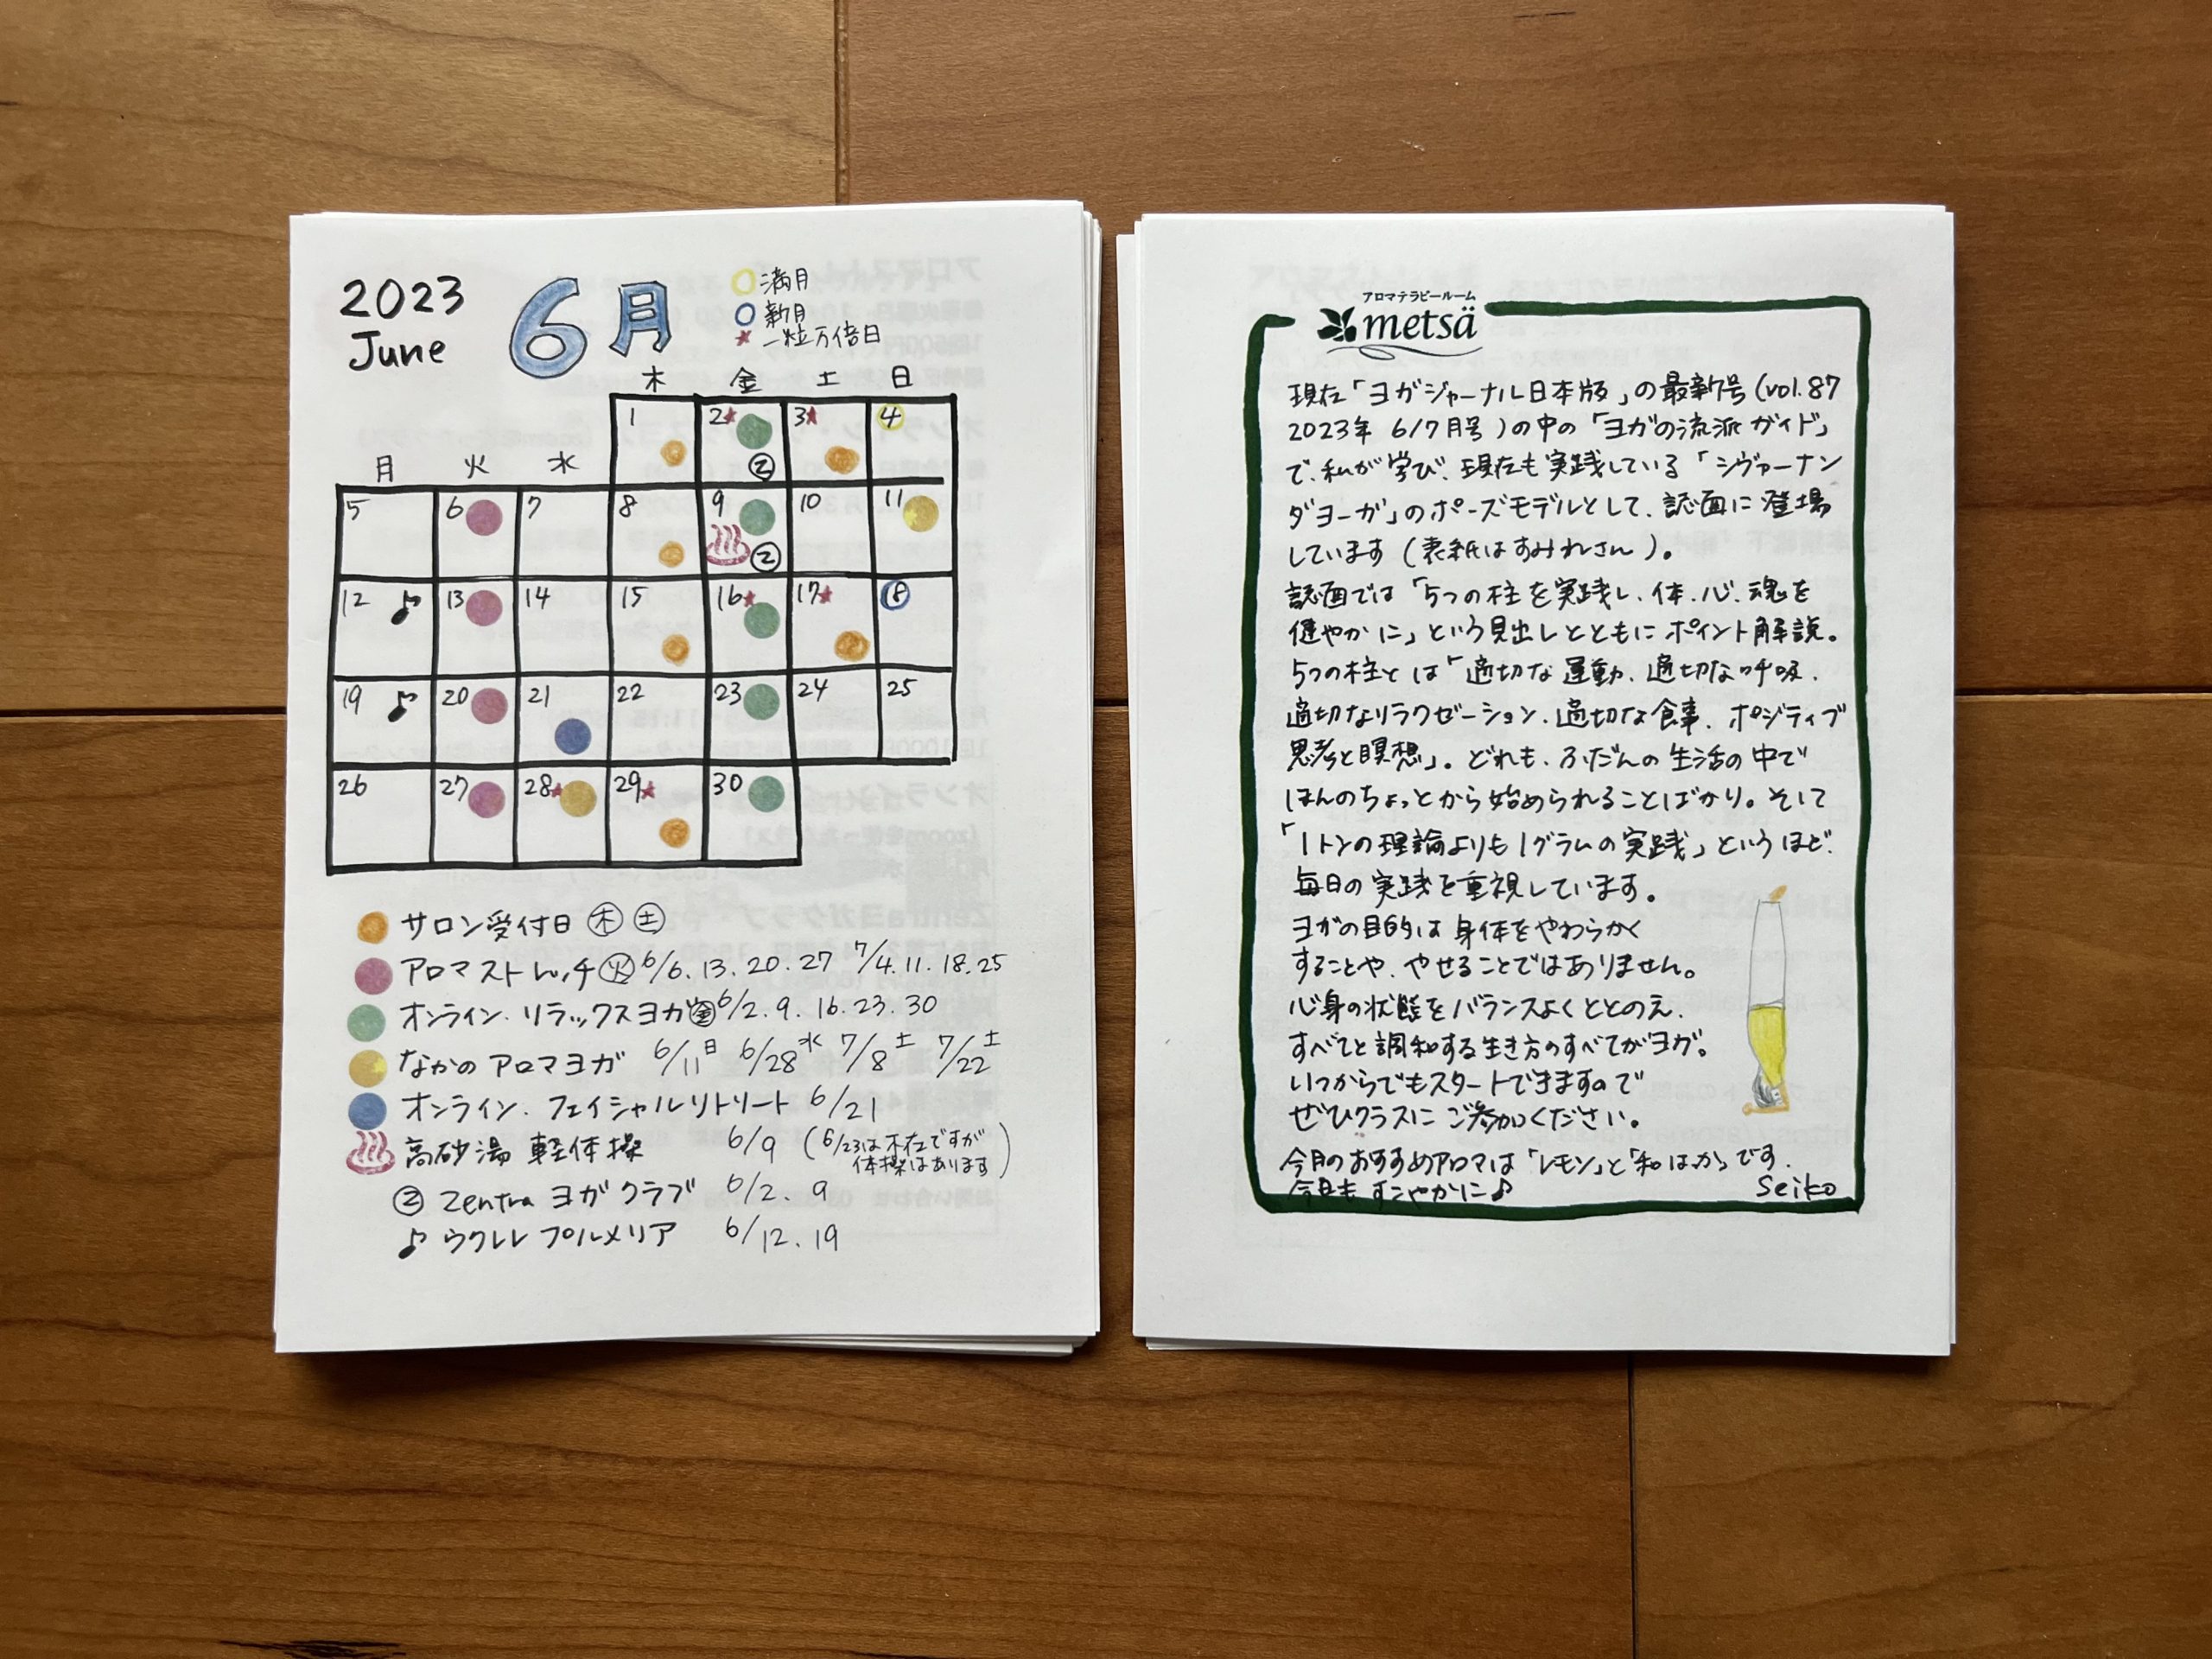 2023
June
6月
満月
新月
一粒万倍日
木 金 土 日
月 火 水
1 2 3 4
5 6 7 8 9 10 11
12 13 14 15 16 17 18
19 20 21 22 23 24 25
26 27 28 29 30
サロン受付日 木 土
アロマストレッチ 火 6/6. 13. 20. 27 7/4. 11. 18. 25
オンライン. リラックスヨガ 金 6/2. 9. 16. 23. 30
なかの アロマヨガ 6/11日 6/28水 7/8土 7/22土
オンライン. フェイシャルリトリート 6/21
高砂湯 軽体操 6/9 (6/23は不在ですが
体操はあります)
Z Zentra ヨガクラブ 6/2. 9
♪ ウクレレ プルメリア 6/12. 19
アロマテラピールーム
metsä
現在「ヨガジャーナル日本版」の最新号(vol.87
2023年 6/7月号)の中の「ヨガの流派ガイド」
で、私が学び、現在も実践している「シヴァーナン
ダヨーガ」のポーズモデルとして、誌面に登場
しています(表紙はすみれさん)。
誌面では「5つの柱を実践し、体、心、魂を
健やかに」という見出しとともにポイント解説。
5つの柱とは「適切な運動、適切な呼吸、
適切なリラクゼーション、適切な食事、ポジティブ
思考と瞑想」。どれも、ふだんの生活の中で
ほんのちょっとから始められることばかり。そして
「1トンの理論よりも1グラムの実践」というほど、
毎日の実践を重視しています。
ヨガの目的は身体をやわらかく
することや、やせることではありません。
心身の状態をバランスよくととのえ、
すべてと調和する生き方のすべてがヨガ。
いつからでもスタートできますので
ぜひクラスにご参加ください。
今月のおすすめアロマは「レモン」と「和はっか」です。
今月も すこやかに♪ Seiko